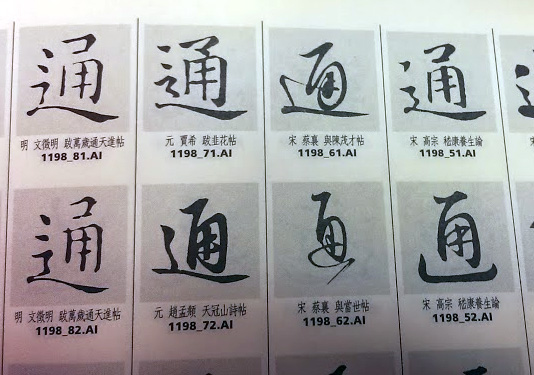 通 通 通 通
明 文徵明 跋萬歲通天進帖 元 賈希 跋韭花帖 宋 蔡襄 與陳茂才帖 宋 高宗 嵇康養生論
1198_81.AI 1198_71.AI 1198_61.AI 1198_51.AI
通 通 通 通
明 文徵明 跋萬歲通天進帖 元 趙孟頫 天冠山詩帖 宋 蔡襄 與當世帖 宋 高宗 嵇康養生論
1198_82.AI 1198_72.AI 1198_62.AI 1198_52.AI